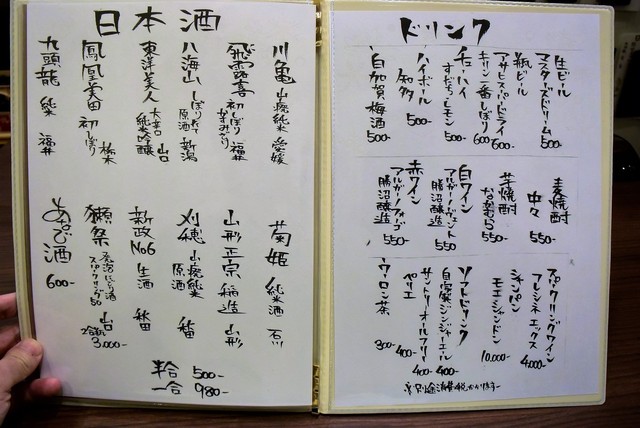 ドリンク
生ビール
マスターズドリーム 500-
瓶ビール
アサヒスーパードライ 600-
キリン一番しぼり 600-
チューハイ
すだち・レモン 500-
ハイボール
知多 500-
自加賀梅酒 500-
麦焼酎
中々 550-
芋焼酎
なか村 550-
白ワイン
アルガーノ・ヴェント
勝沼醸造 550
赤ワイン
アルガーノ・フォーゴ
勝沼醸造 550-
スパークリングワイン
フレシネ エックス 4.000-
シャンパン
モエシャンドン 10.000-
ソフトドリンク
自家製ジンジャーエール 400-
サントリーオールフリー 400-
ペリエ 400-
ウーロン茶 300-
※別途消費税かかります
日本酒
川亀 山廃純米 愛媛
飛露喜 初しぼり かすみざけ 福井
八海山 しぼりたて原酒 新潟
東洋美人 大辛口 純米吟醸 山口
鳳凰美田 初しぼり 栃木
九頭龍 純米 福井
菊姫 純米酒 石川
山形正宗 稲造 山形
刈穂 山廃純米原酒 秋田
新政 No6 生酒 秋田
獺祭 発泡にごり酒 スパークリング50 山口 2合瓶 3.000-
あなご酒 600-
半合 500-
一合 980-